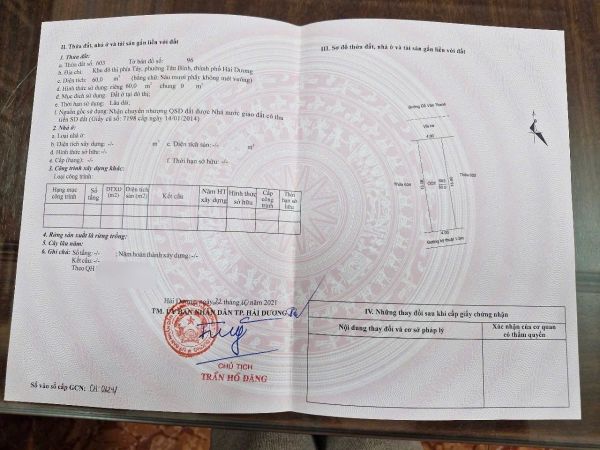 II. Thửa đất, nhà ở và tài sản gắn liền với đất
1. Thửa đất:
a. Thửa đất số: 603 Tờ bản đồ số: 96
b. Địa chỉ: Khu đô thị phía Tây, phường Tân Bình, thành phố Hải Dương
c. Diện tích: 60,0 m² (bằng chữ: Sáu mươi phẩy không mét vuông)
d. Hình thức sử dụng: riêng 60,0 m² chung 0 m²
đ. Mục đích sử dụng: Đất ở tại đô thị;
e. Thời hạn sử dụng: Lâu dài;
f. Nguồn gốc sử dụng: Nhận chuyển nhượng QSD đất được Nhà nước giao đất có thu
tiền SD đất (Giấy cũ số: 7198 cấp ngày 14/01/2014)
2. Nhà ở:
a. Loại nhà ở:
b. Diện tích xây dựng: -/- m² c. Diện tích sàn: -/- m²
d. Hình thức sở hữu: -/-
e. Cấp (hạng): -/- f. Thời hạn sở hữu: -/-
3. Công trình xây dựng khác:
Loại công trình:
Hạng mục công trình Số tầng DTXD (m2) Diện tích sàn (m2) Kết cấu Năm HT xây dựng Hình thức sở hữu Cấp công trình Thời hạn sở hữu
4. Rừng sản xuất là rừng trồng:
5. Cây lâu năm:
6. Ghi chú: Số tầng: -/- ; Năm hoàn thành xây dựng: -/-
Kết cấu: -/-
Theo QH
Hải Dương, ngày 22 tháng 10 năm 2021
TM. ỦY BAN NHÂN DÂN TP. HẢI DƯƠNG
CHỦ TỊCH
TRẦN HỒ ĐĂNG
Số vào sổ cấp GCN:
III. Sơ đồ thửa đất, nhà ở và tài sản gắn liền với đất
Vỉa hè
4.00
Thửa 604
Thửa 602
15.00
15.00
4.00
IV. Những thay đổi sau khi cấp giấy chứng nhận
Nội dung thay đổi và cơ sở pháp lý
Xác nhận của cơ quan
có thẩm quyền